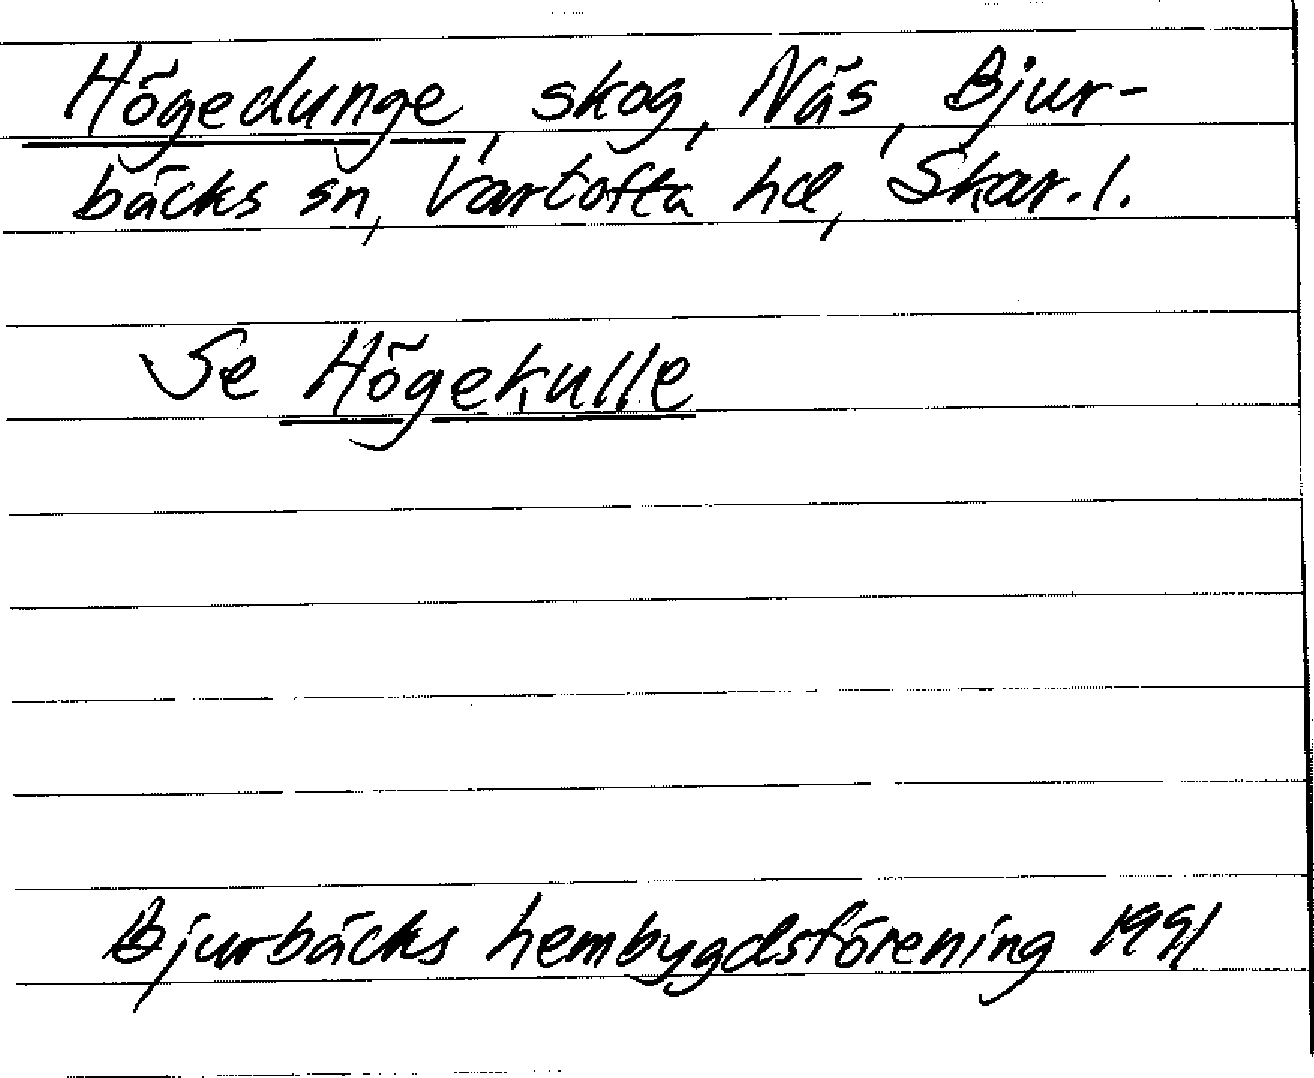 Högedunge, skog, Näs, Bjur-
bäcks sn, Vartofta hd, Skar. l.
Se Högekulle
Bjurbäcks hembygdsförening 1991